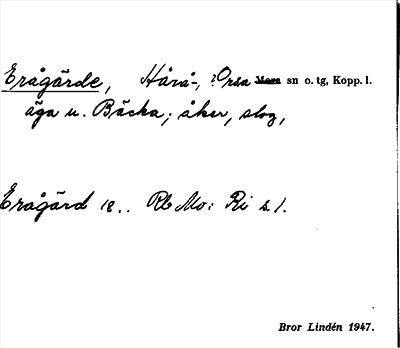 Erågärde, Hårå-, ?Orsa Mora sn o. tg, Kopp. l.
äga u. Bäcka; åker, slog,
Erågärd 18.. Rb Mo: Ri s. 1.
Bror Lindén 1947.